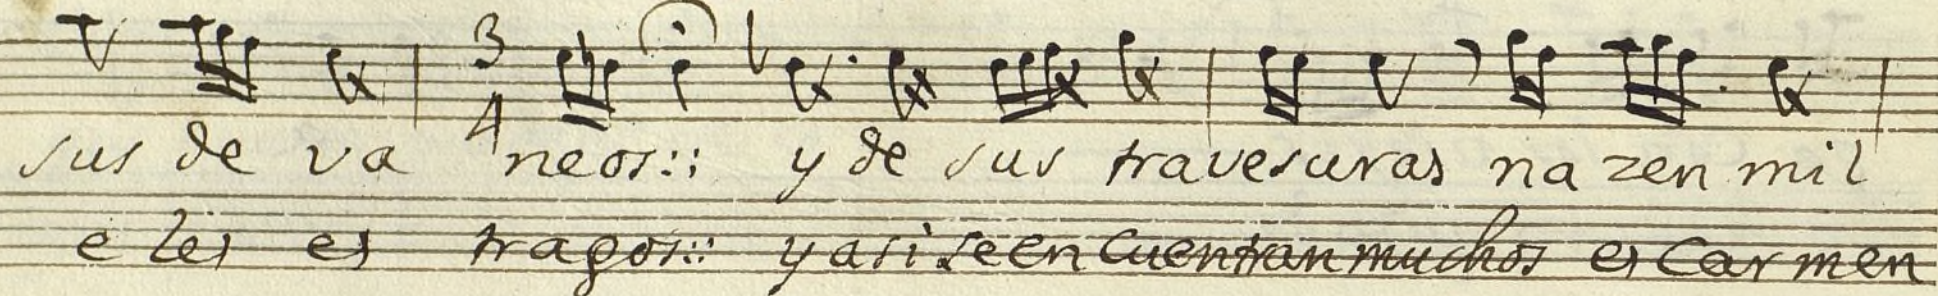 3
4
sus de va neos:: y de sus travesuras na zen mil
e les es tragos:: y asi se en cuentran muchos es Car men